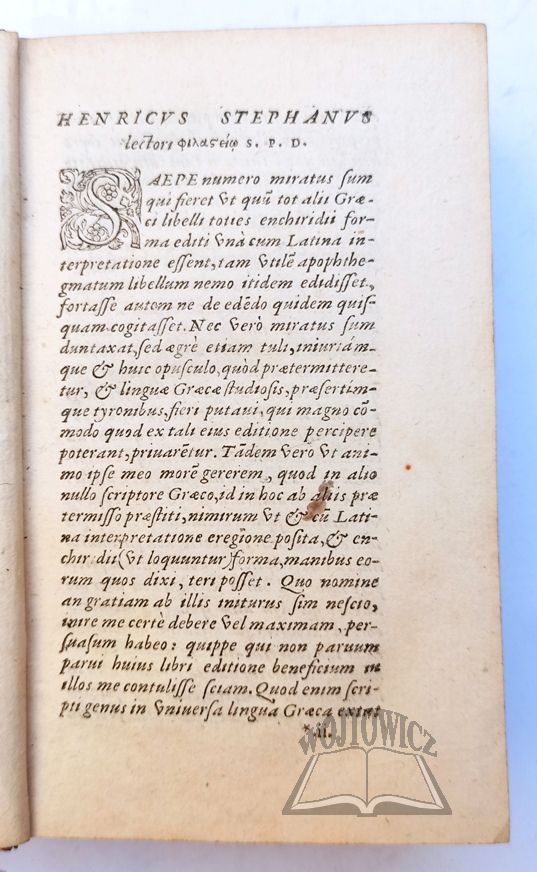 HENRICVS STEPHANVS
lectori φιλαϛείῳ S. P. D.
SAEPE numero miratus sum
qui fieret vt quū tot alii Græ-
ci libelli toties enchiridii for-
ma editi vnà cum Latina in-
terpretatione essent, tam vtilē apophthe-
gmatum libellum nemo itidem edidisset,
fortasse autem ne de edēdo quidem quis-
quam cogitasset. Nec verò miratus sum
duntaxat, sed ægrè etiam tuli, iniuriám-
que & huic opusculo, quòd prætermittere-
tur, & linguæ Græcæ studiosis, præsertím-
que tyronibus, fieri putaui, qui magno cō-
modo quod ex tali eius editione percipere
poterant, priuarētur. Tādem verò vt ani-
mo ipse meo morē gererem, quod in alio
nullo scriptore Græco, id in hoc ab aliis præ
termisso præstiti, nimirum vt & cū Lati-
na interpretatione eregiōne posita, & en-
chiridii (vt loquuntur) forma, manibus eo-
rum quos dixi, teri posset. Quo nomine
an gratiam ab illis initurus sim nescio,
inire me certè debere vel maximam, per-
suasum habeo: quippe qui non paruum
parui huius libri editione beneficium in
illos me contulisse sciam. Quod enim scri-
pti genus in vniuersa lingua Græca extat
*.ii.
WÓJTOWICZ